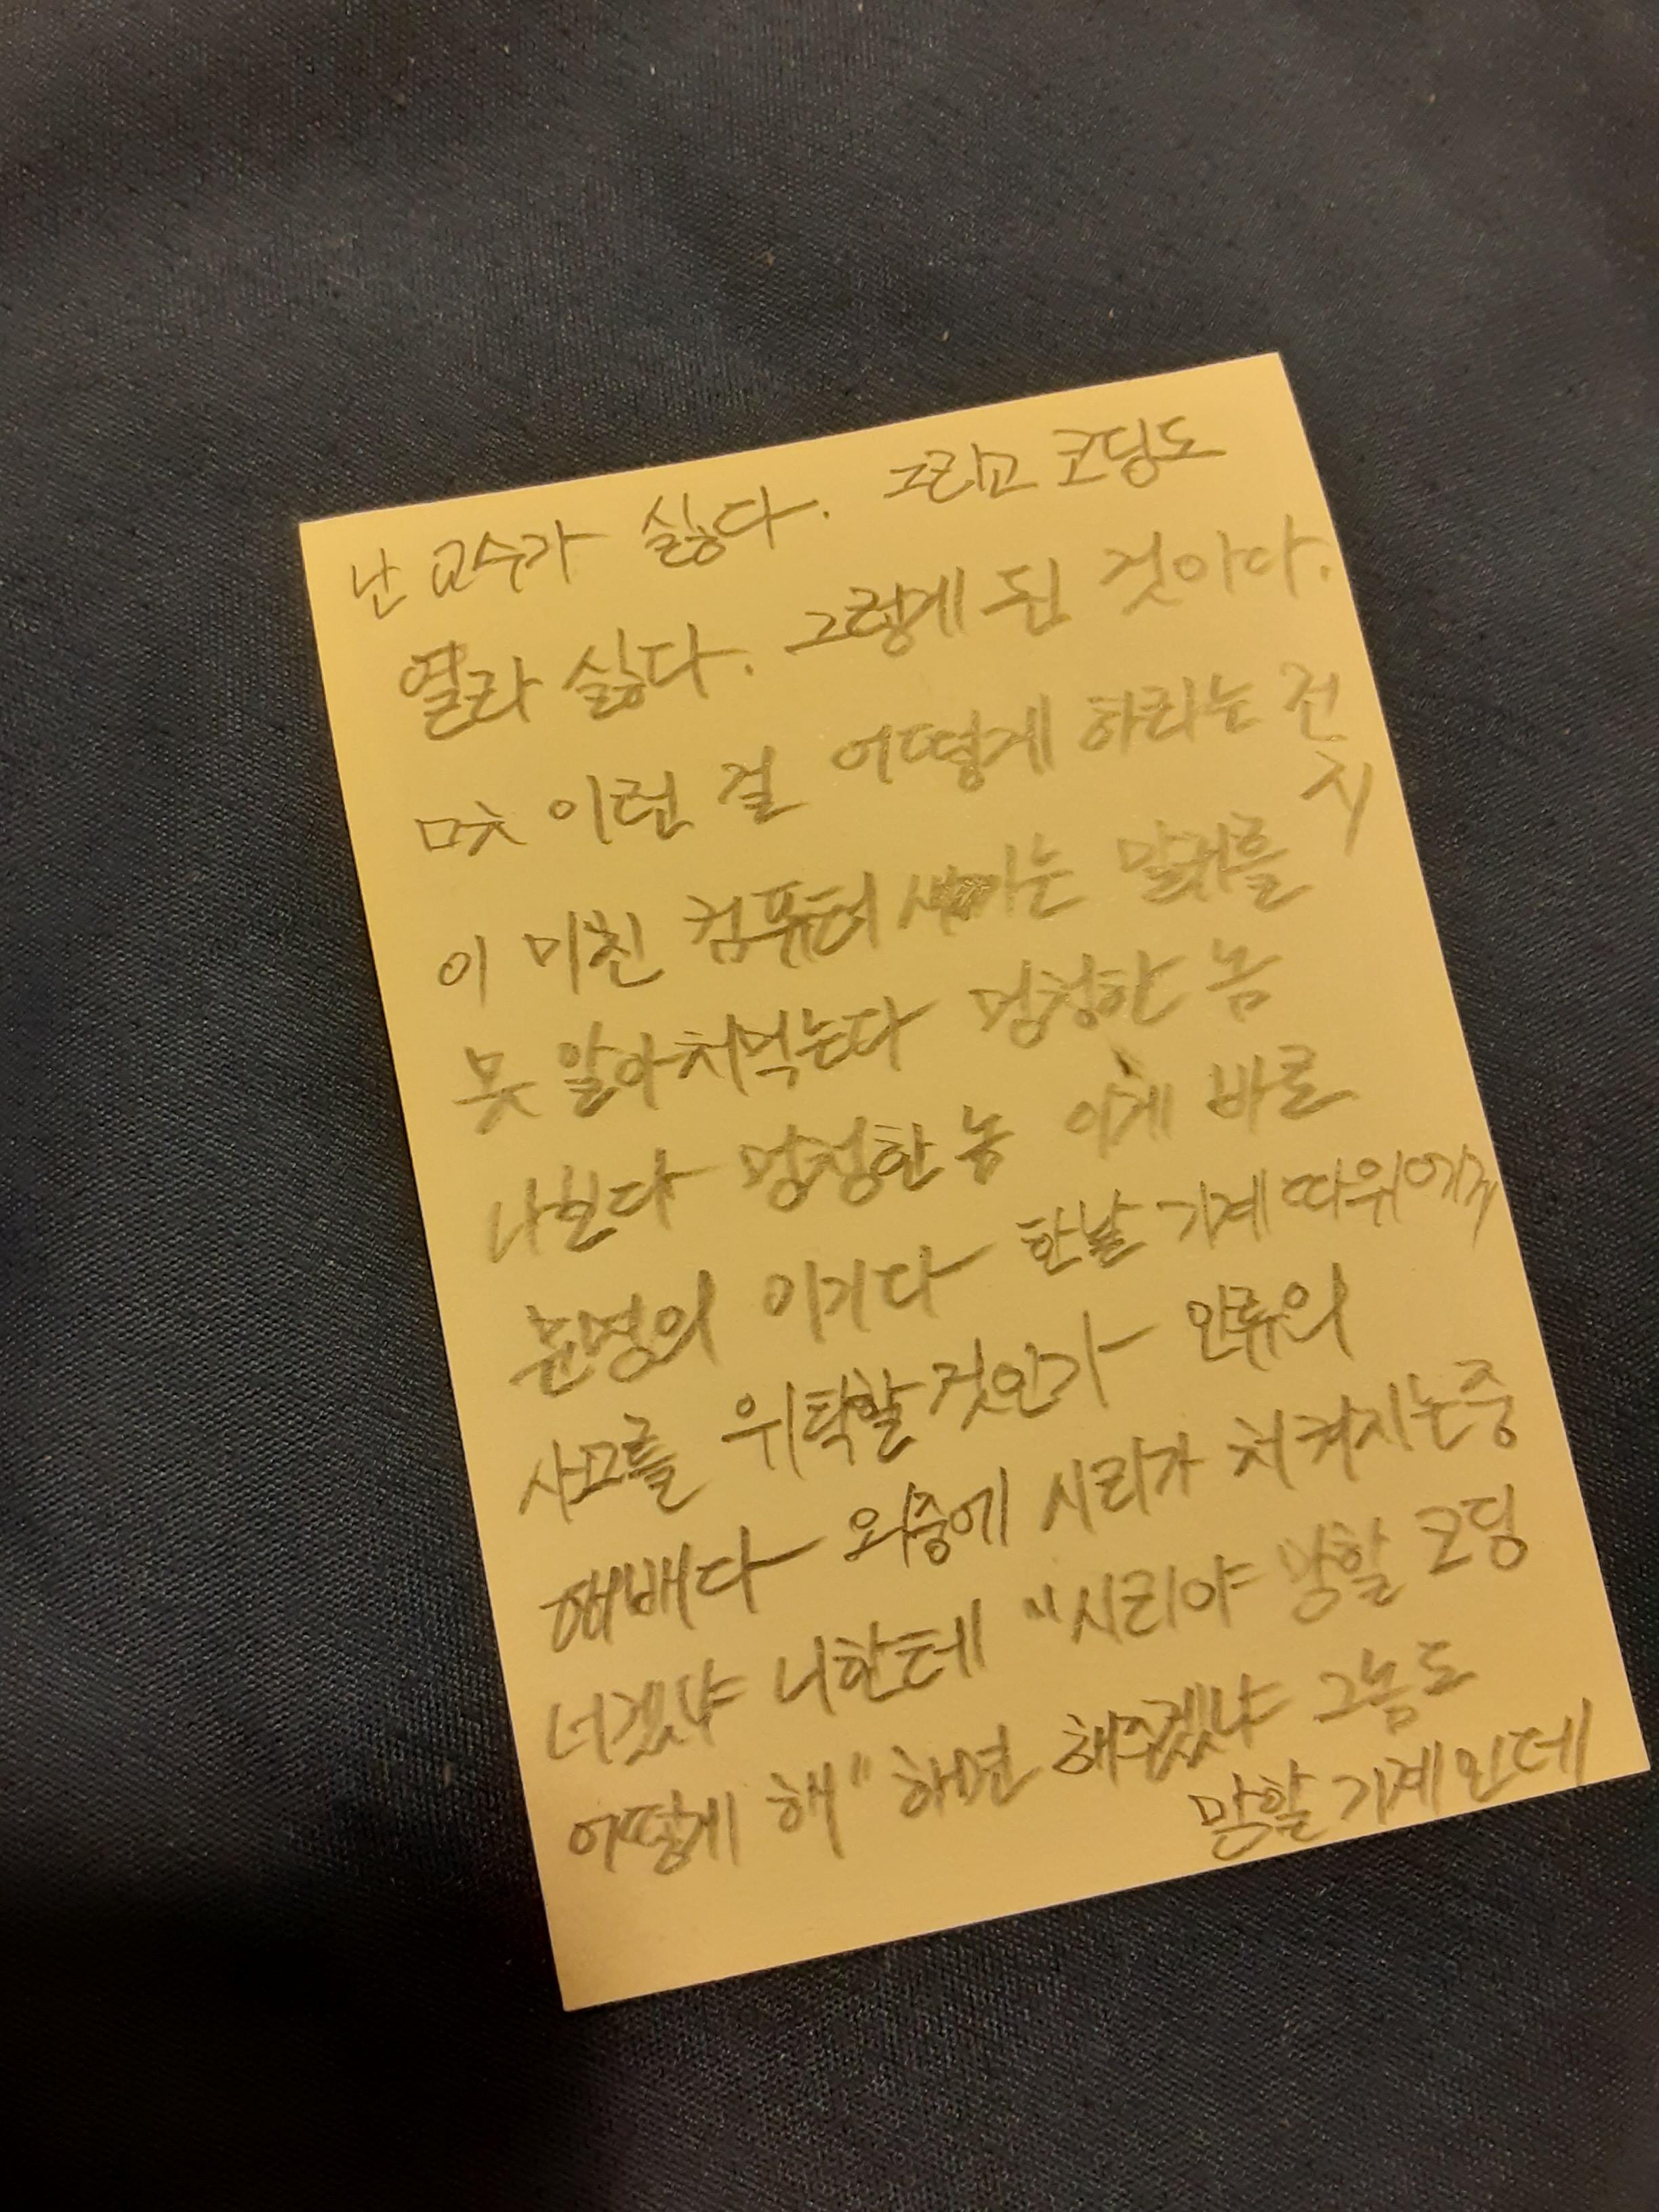 난 교수가 싫다. 그리고 코딩도
열라 싫다. 그렇게 된 것이다.
이런 걸 어떻게 하라는 건
지
이 미친 컴퓨터 새끼는 말귀를
못 알아처먹는다 멍청한 놈
나쁜다 멍청한 놈 이게 바로
문명의 이기다 한낱 기계 따위에게
사고를 위탁할 것인가 인류의
패배다 와중에 시리가 처 켜지는중
너겠냐 니한테 "시리야 망할 코딩
어떻게 해" 하면 해주겠냐 그놈도
망할 기계인데